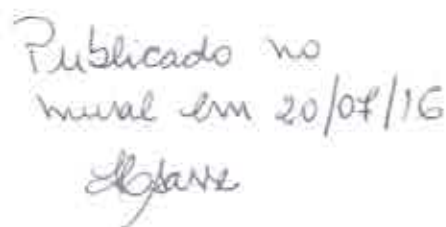 Publicado no
mural em 20/07/16